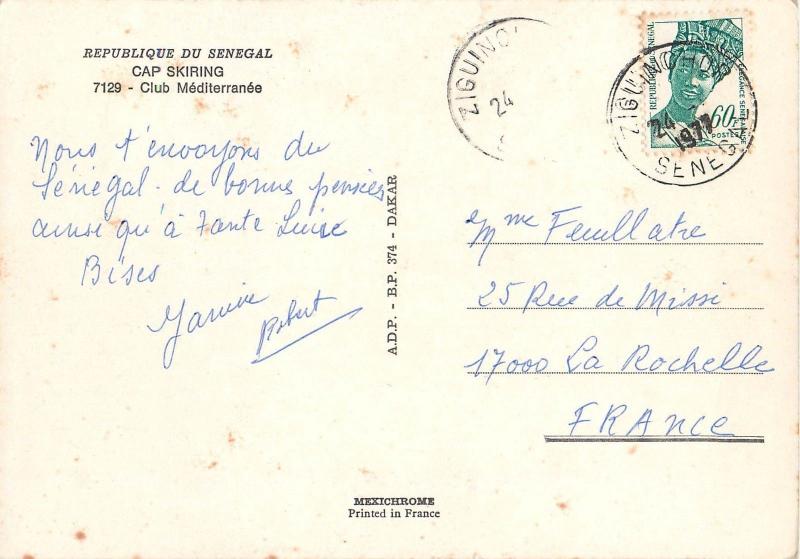 REPUBLIQUE DU SENEGAL
CAP SKIRING
7129 - Club Méditerranée
Nous t'envoyons du
Sénégal de bonnes pensées
ainsi qu'à Tante Luise
Bises
Janine
Robert
A.D.P. - B.P. 374 - DAKAR
ZIGUINCH
24
REPUBLIQUE DU SENEGAL
ELEGANCE SENEGALAISE
60F
POSTES
ZIGUINCHOR
24
1977
SENEG
Mme Feuillatre
25 Rue de Missi
17000 La Rochelle
FRANCE
MEXICHROME
Printed in France